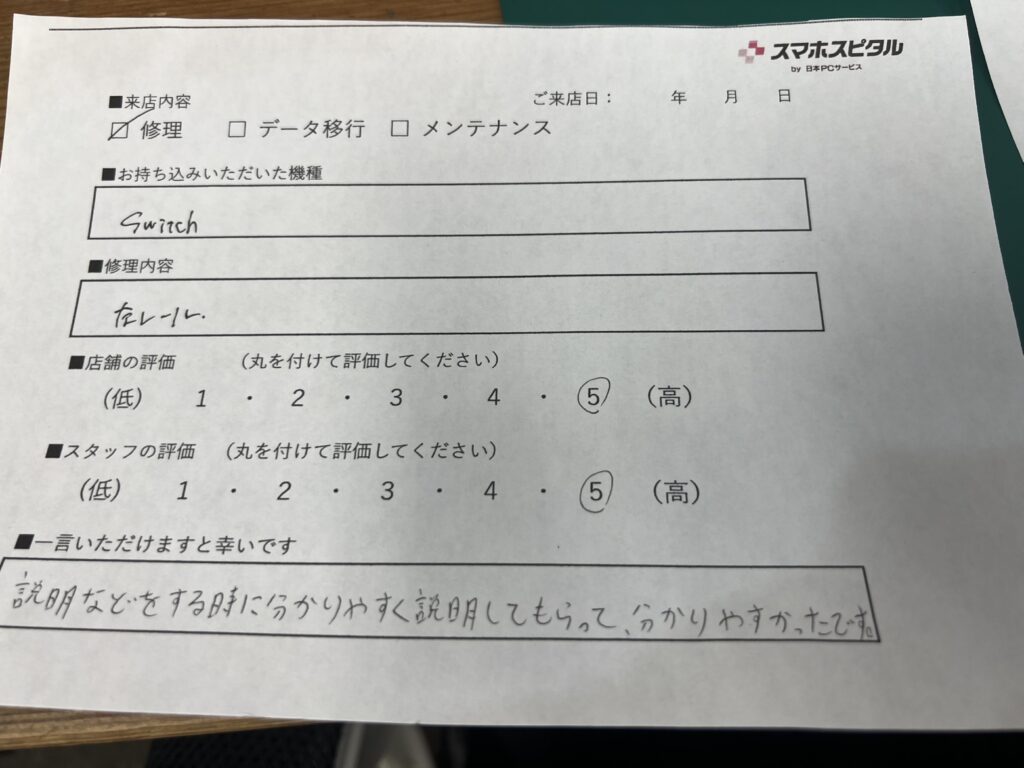 スマホスピタル
by 日本PCサービス
■来店内容
ご来店日： 年 月 日
☑ 修理 □ データ移行 □ メンテナンス
■お持ち込みいただいた機種
Switch
■修理内容
左レール.
■店舗の評価 （丸を付けて評価してください）
（低） 1 ・ 2 ・ 3 ・ 4 ・ 5 （高）
■スタッフの評価 （丸を付けて評価してください）
（低） 1 ・ 2 ・ 3 ・ 4 ・ 5 （高）
■一言いただけますと幸いです
説明などをする時に分かりやすく説明してもらって、分かりやすかったです。